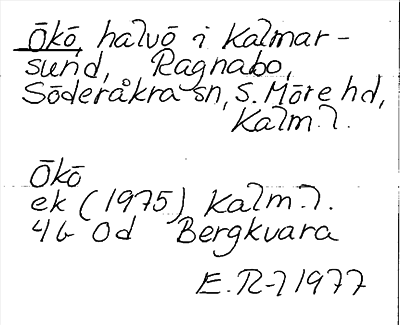 Ökö, halvö i Kalmar-
sund, Ragnabo,
Söderåkra sn, S. Möre hd,
Kalm. l.
Ökö
ek (1975) Kalm. l.
4b Od Bergkvara
E. R-l 1977